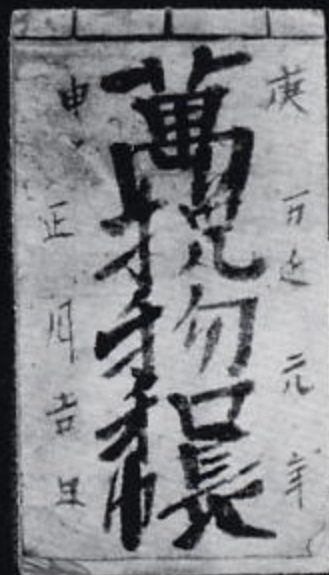 庚 万延元年
萬祝物扣帳
申 正月吉日